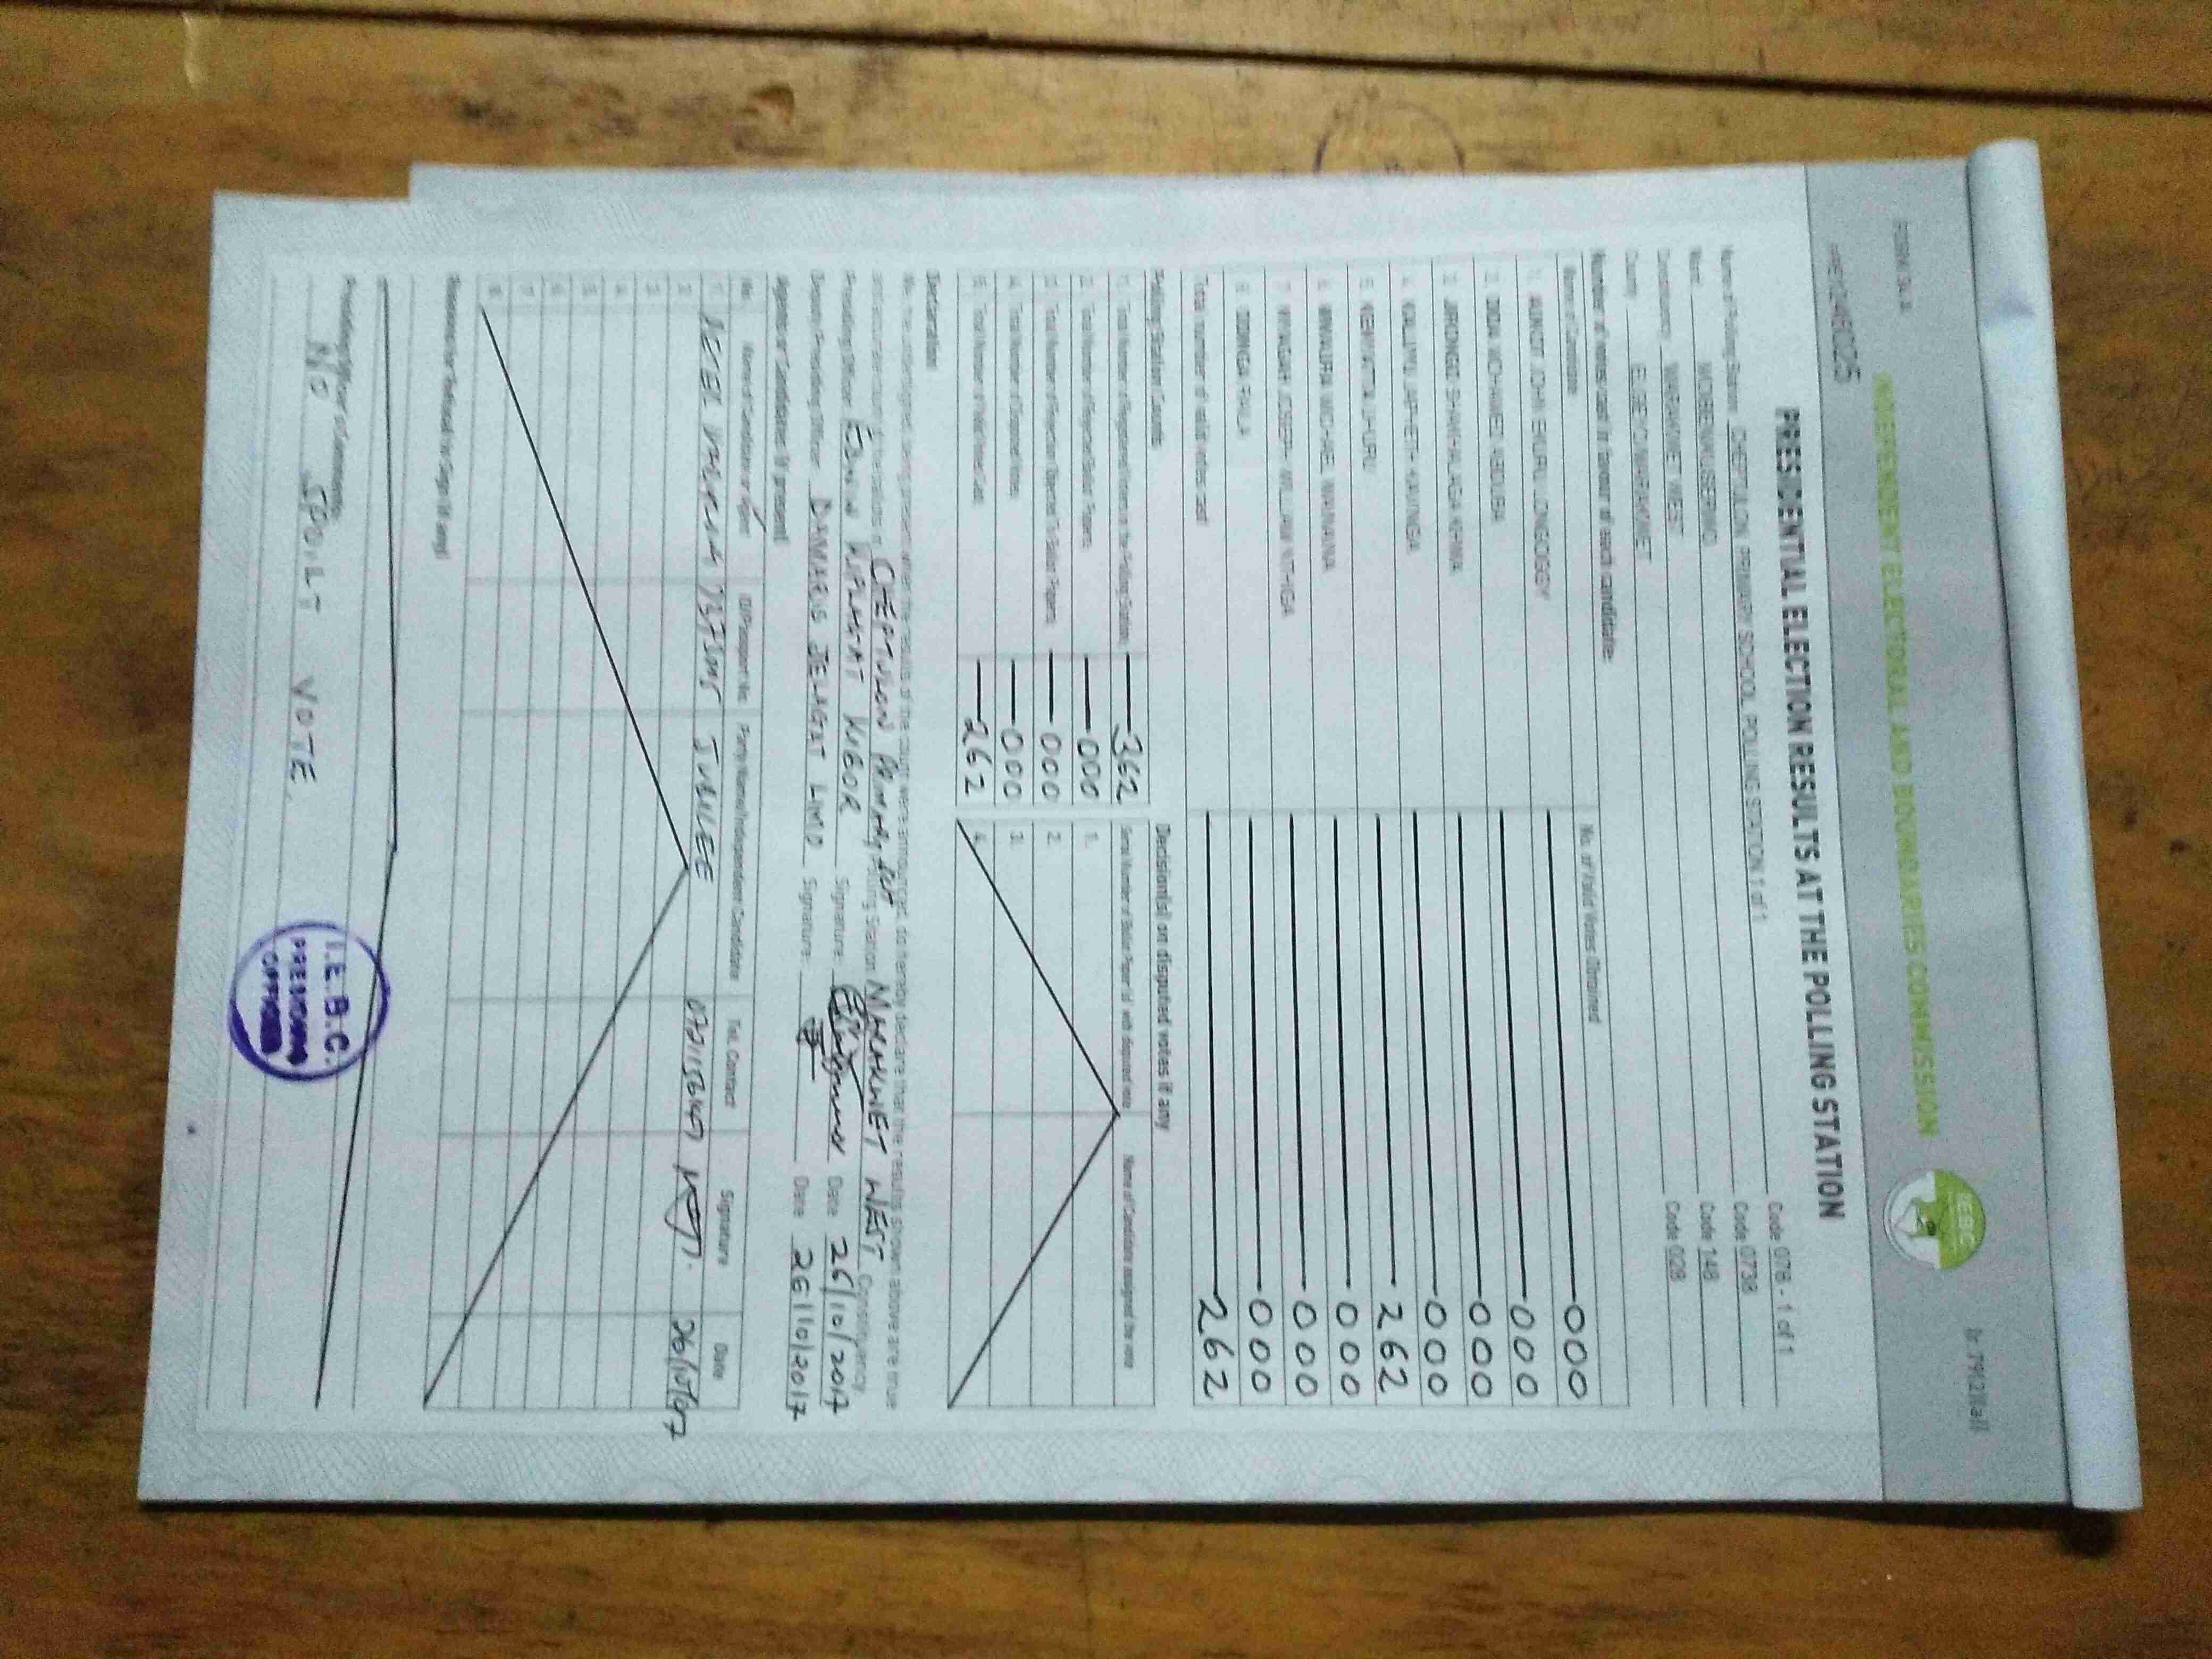 FORM 34 A
INDEPENDENT ELECTORAL AND BOUNDARIES COMMISSION
IEBC
PRESIDENTIAL ELECTION RESULTS AT THE POLLING STATION
Name of Polling Station CHEPTULON PRIMARY SCHOOL POLLING STATION 1 of 1 Code 078 - 1 of 1
Ward MOIBEN/KUSERWO Code 0738
Constituency MARAKWET WEST Code 148
County ELGEYO/MARAKWET Code 028
Number of votes cast in favour of each candidate:
Name of Candidate No. of Valid Votes Obtained
1. AUKOT JOHN EKURU LONGOGGY 000
2. DIDA MOHAMED ABDUBA 000
3. JIRONGO SHAKHALAGA KHWA 000
4. KALUYU JAPHETH KAVINGA 000
5. KENYATTA UHURU 262
6. MWAURA MICHAEL WAINAINA 000
7. NYAGAH JOSEPH WILLIAM NTHIGA 000
8. ODINGA RAILA 000
Total number of valid votes cast 262
Polling Station Counts
1. Total Number of Registered Voters in the Polling Station 362
2. Total Number of Rejected Ballot Papers 000
3. Total Number of Rejection Objected To Ballot Papers 000
4. Total Number of Disputed Votes 000
5. Total Number of Valid Votes Cast 262
Decision(s) on disputed votes if any
Serial Number of Ballot Paper(s) with disputed vote Name of Candidate assigned the vote
1.
2.
3.
4.
Declaration
We, the undersigned, being present when the results of the count were announced, do hereby declare that the results shown above are true
and accurate count of the ballots in CHEPTULON Primary Polling Station MARAKWET WEST Constituency
Presiding Officer KIPLAGAT KIBOR Signature Date 26/10/2017
Deputy Presiding Officer DAMARIS JELAGAT LIMO Signature: Date 26/10/2017
Agents or Candidates (if present)
No. Name of Candidate or Agent ID/Passport No. Party Name/Independent Candidate Tel. Contact Signature Date
1. JUBILEE 26/10/2017
2.
3.
4.
5.
6.
7.
8.
Reasons for Refusal to Sign (if any)
Presiding Officer's Comments:
NO SPOILT VOTE.
I.E.B.C.
PRESIDING
OFFICER